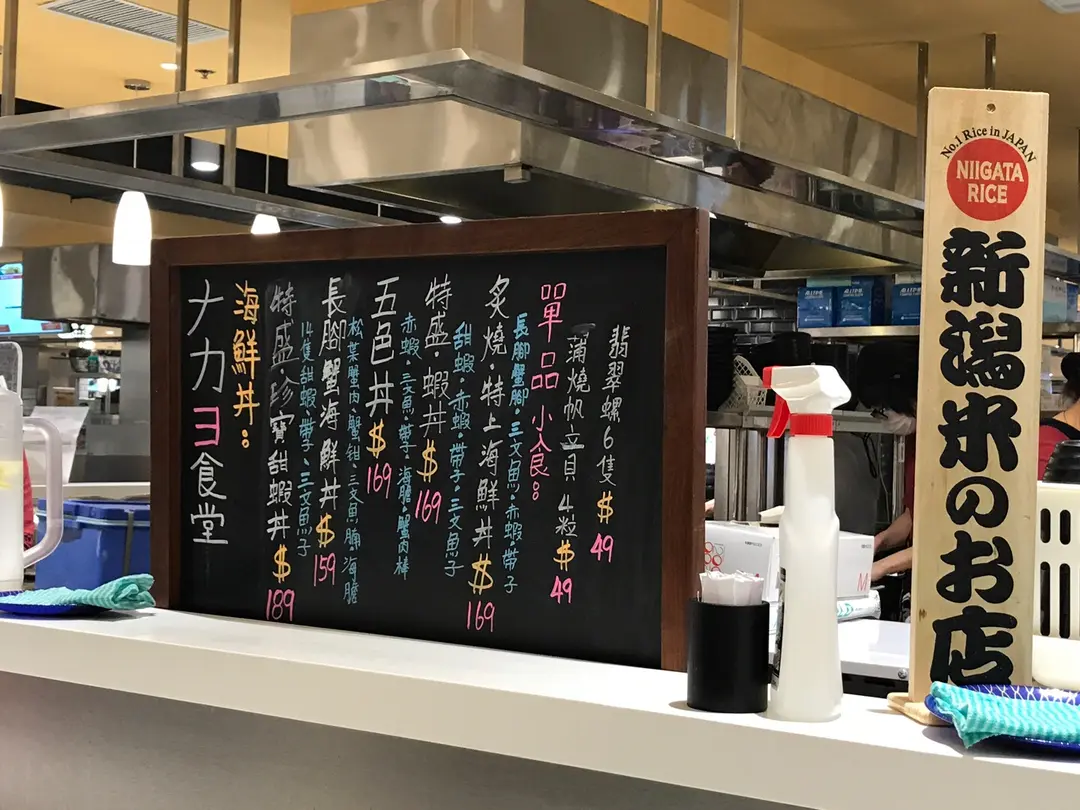 ナカヨ食堂
海鮮丼:
特盛·珍寶甜蝦丼 $189
14隻甜蝦·帶子·三文魚子
長腳蟹海鮮丼 $159
松葉蟹肉·蟹鉗·三文魚腩·海膽
五色丼 $169
赤蝦·三文魚·帶子·海膽·蟹肉棒
特盛·蝦丼 $169
甜蝦·赤蝦·帶子·三文魚子
炙燒·特上海鮮丼 $169
長腳蟹腳·三文魚·赤蝦·帶子
單品小食:
蒲燒帆立貝4粒 $49
翡翠螺6隻 $49
No.1 Rice in JAPAN
NIIGATA
RICE
新潟米のお店